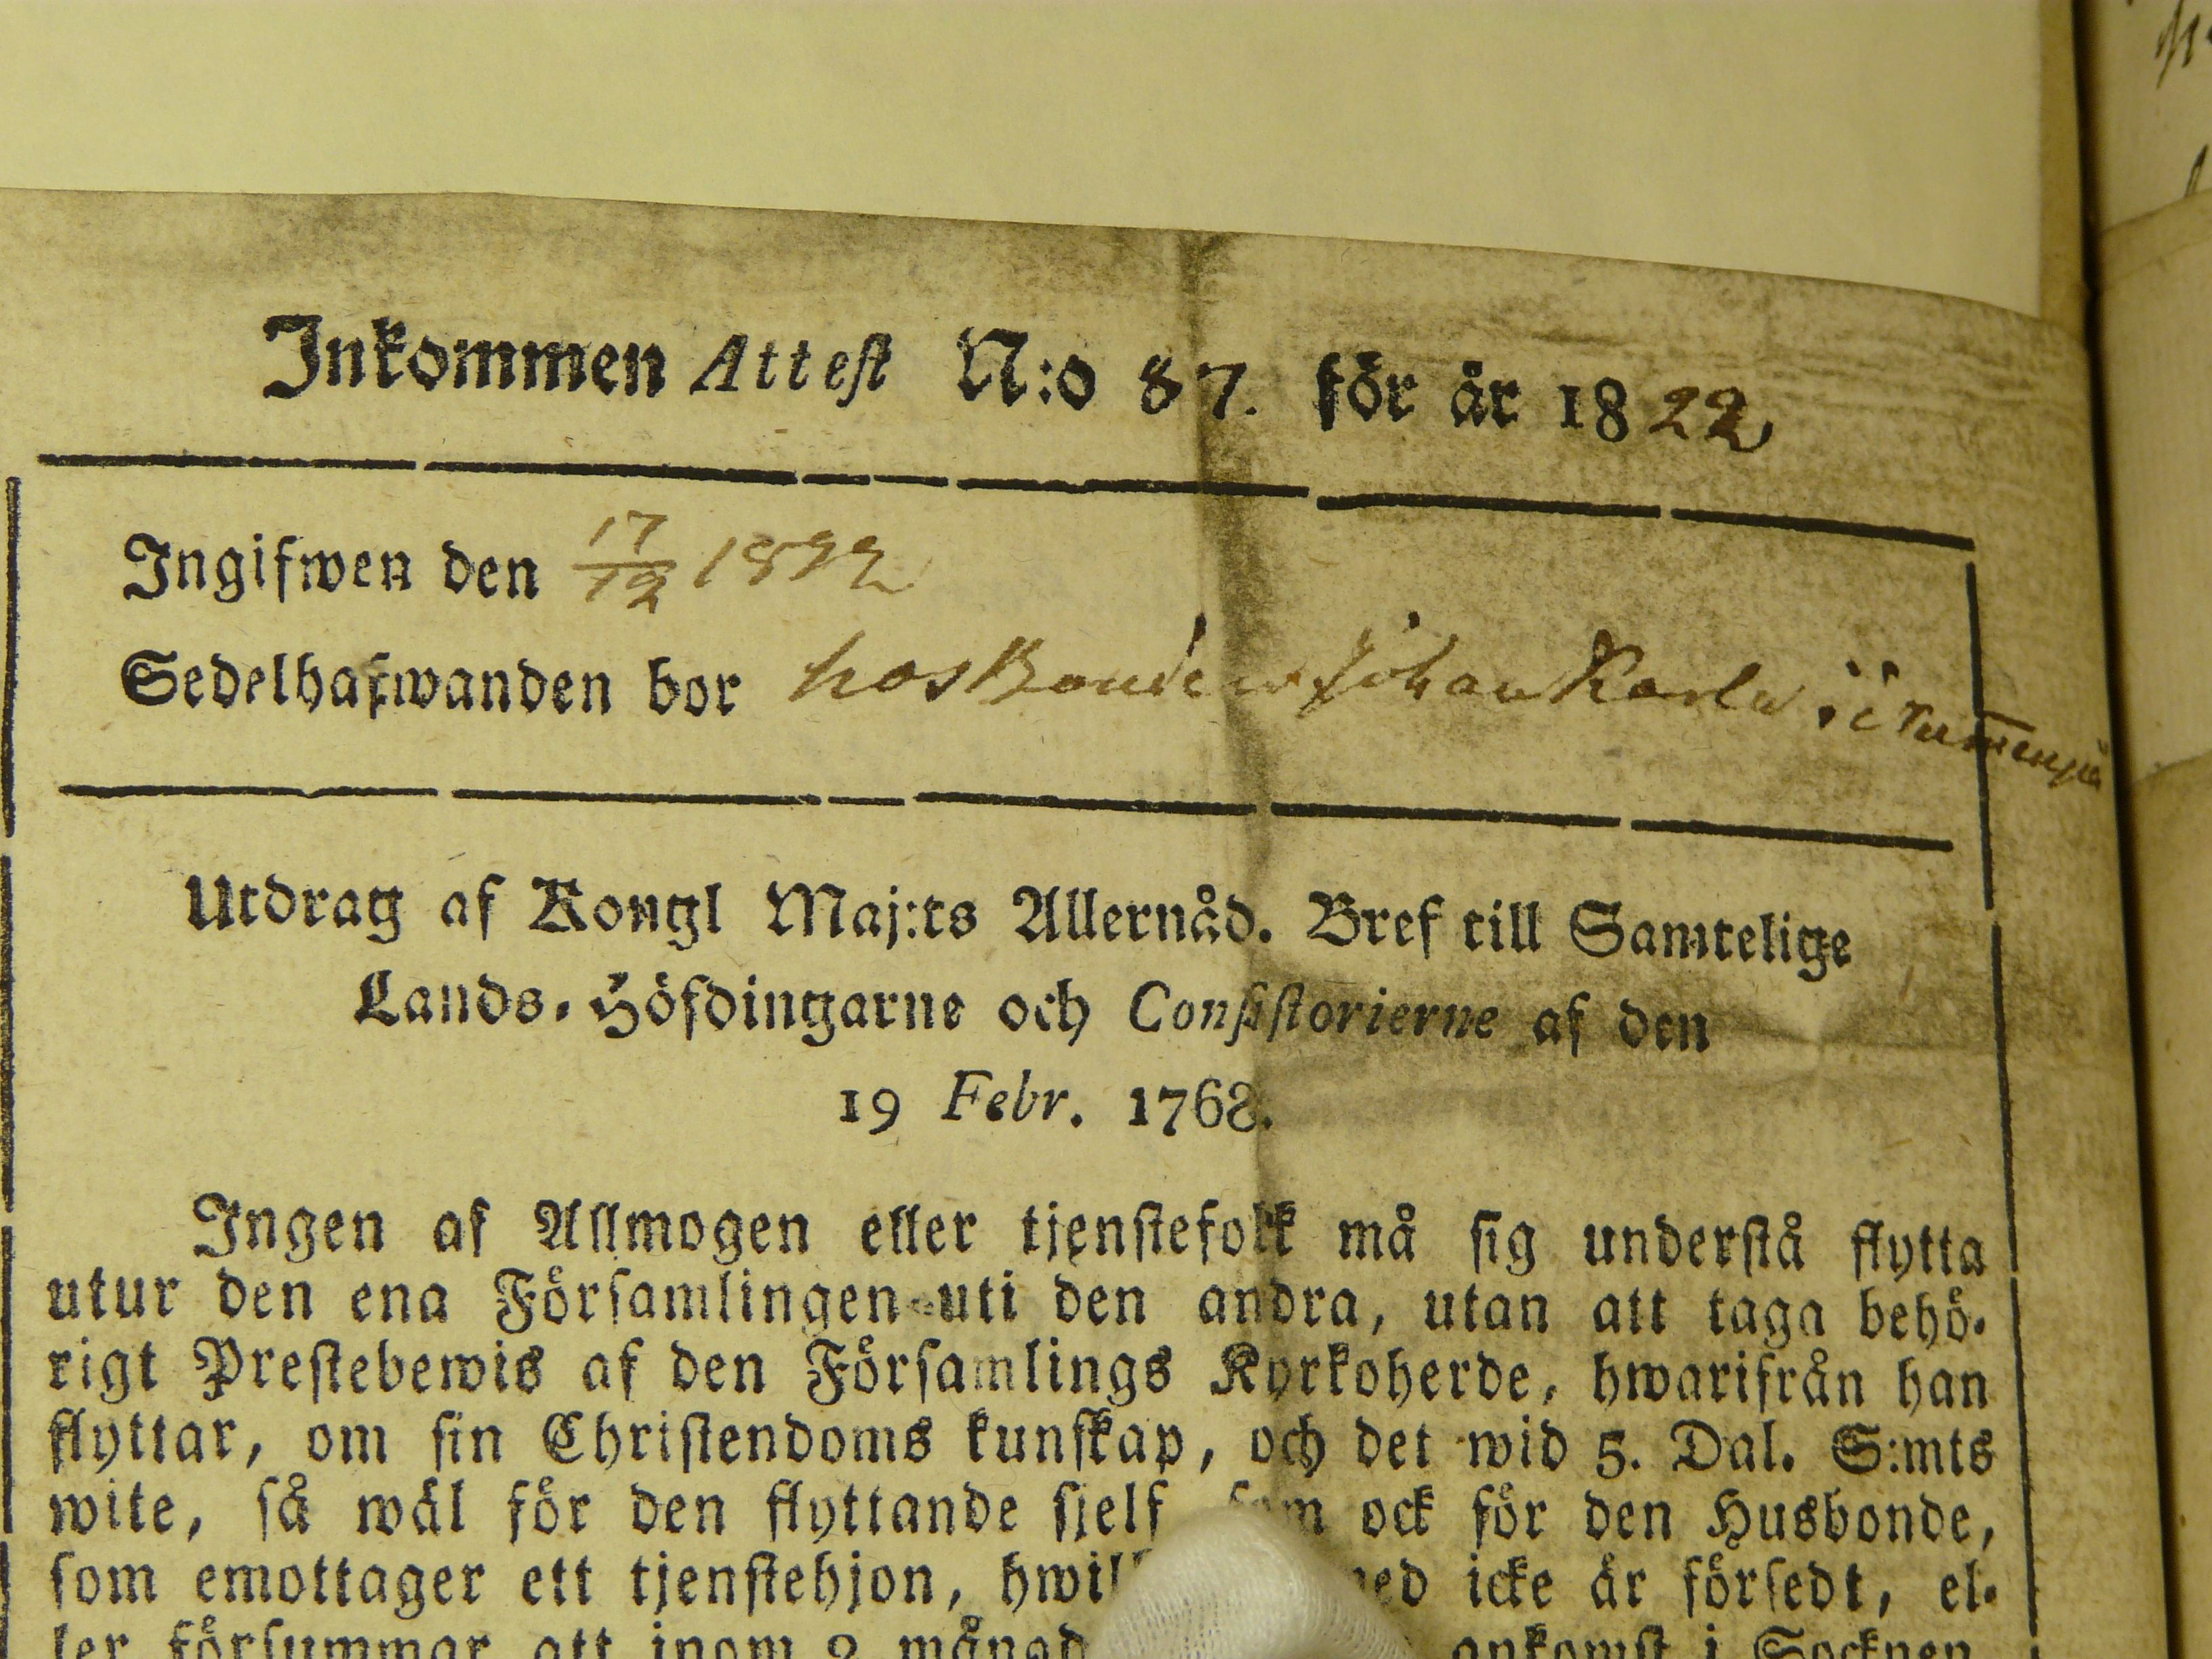 Inkommen Attest N:o 87. för år 1822
Ingifwen den 17/12 1822
Sedelhafwanden bor hos Bonden Johan Karlu i
Utdrag af Kongl Maj:ts Allernåd. Bref till Samtelige
Lands-Höfdingarne och Consistorierne af den
19 Febr. 1768.
Ingen af Allmogen eller tjenstefolk må sig understå flytta
utur den ena Församlingen uti den andra, utan att taga behö-
rigt Prestebewis af den Församlings Kyrkoherde, hwarifrån han
flyttar, om sin Christendoms kunskap, och det wid 5. Dal. S:mts
wite, så wäl för den flyttande sjelf som ock för den Husbonde,
som emottager ett tjenstehjon, icke är försedt, el-
ler försummar att inom 2 ankomst i Socknen